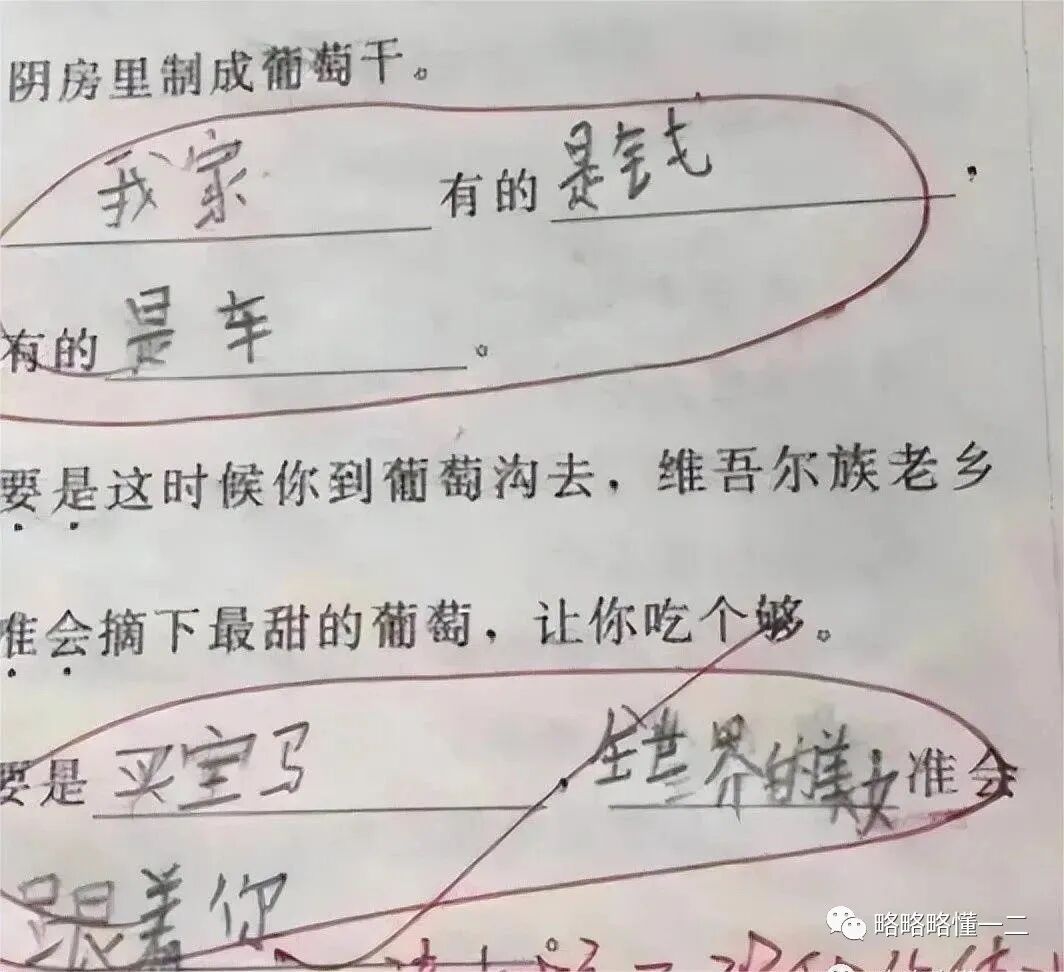 阴房里制成葡萄干。
我家有的是钱，
有的是车。
要是这时候你到葡萄沟去，维吾尔族老乡
准会摘下最甜的葡萄，让你吃个够。
要是买宝马，全世界的美女准会
跟着你。
略略略懂一二